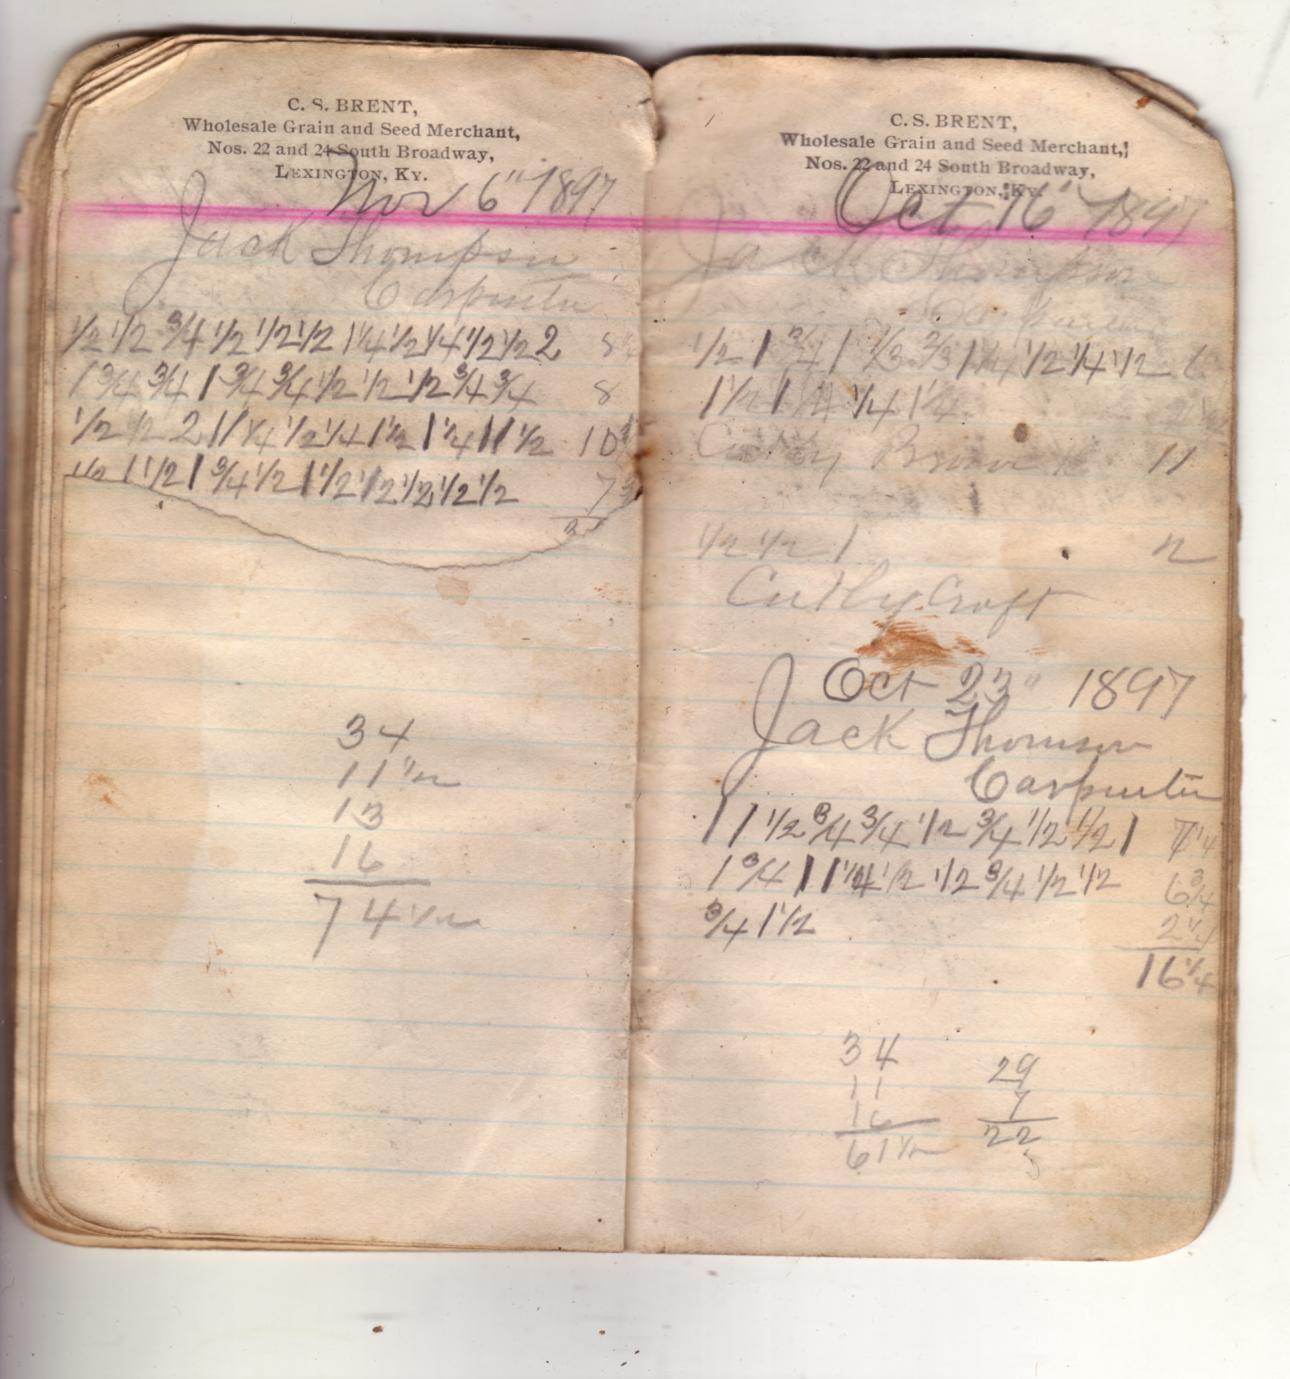 C. S. BRENT,
Wholesale Grain and Seed Merchant,
Nos. 22 and 24 South Broadway,
LEXINGTON, KY.
Nov 6" 1897
Jack Thompson
Carpenter
1/2 1/2 3/4 1/2 1/2 1/2 1 1/4 1/2 1/4 1/2 1/2 2 8
1 3/4 3/4 1 3/4 3/4 1/2 1/2 1/2 3/4 3/4 8
1/2 1/2 2 1 1 1/4 1/2 1/4 1 1/2 1 1/4 1 1 1/2 10
1/2 1 1/2 1 3/4 1/2 1 1/2 1/2 1/2 1/2 1/2 7
34
11 1/2
13
16
74 1/2
C. S. BRENT,
Wholesale Grain and Seed Merchant,
Nos. 22 and 24 South Broadway,
LEXINGTON, KY.
Oct 16" 1897
Jack Thompson
1/2 1 3/4 1 1/3 2/3 1 1/4 1/2 1/4 1/2
1 1/2 1 1/4 1/4 1 1/4
11
1/2 1/2 1
Oct 23" 1897
Jack Thomson
Carpenter
1 1 1/2 3/4 3/4 1/2 3/4 1/2 1/2 1 7 1/4
1 3/4 1 1 1/4 1/2 1/2 3/4 1/2 1/2 6 3/4
3/4 1 1/2 2 1/4
16 1/4
34 29
11 7
16 22
61 1/2 5